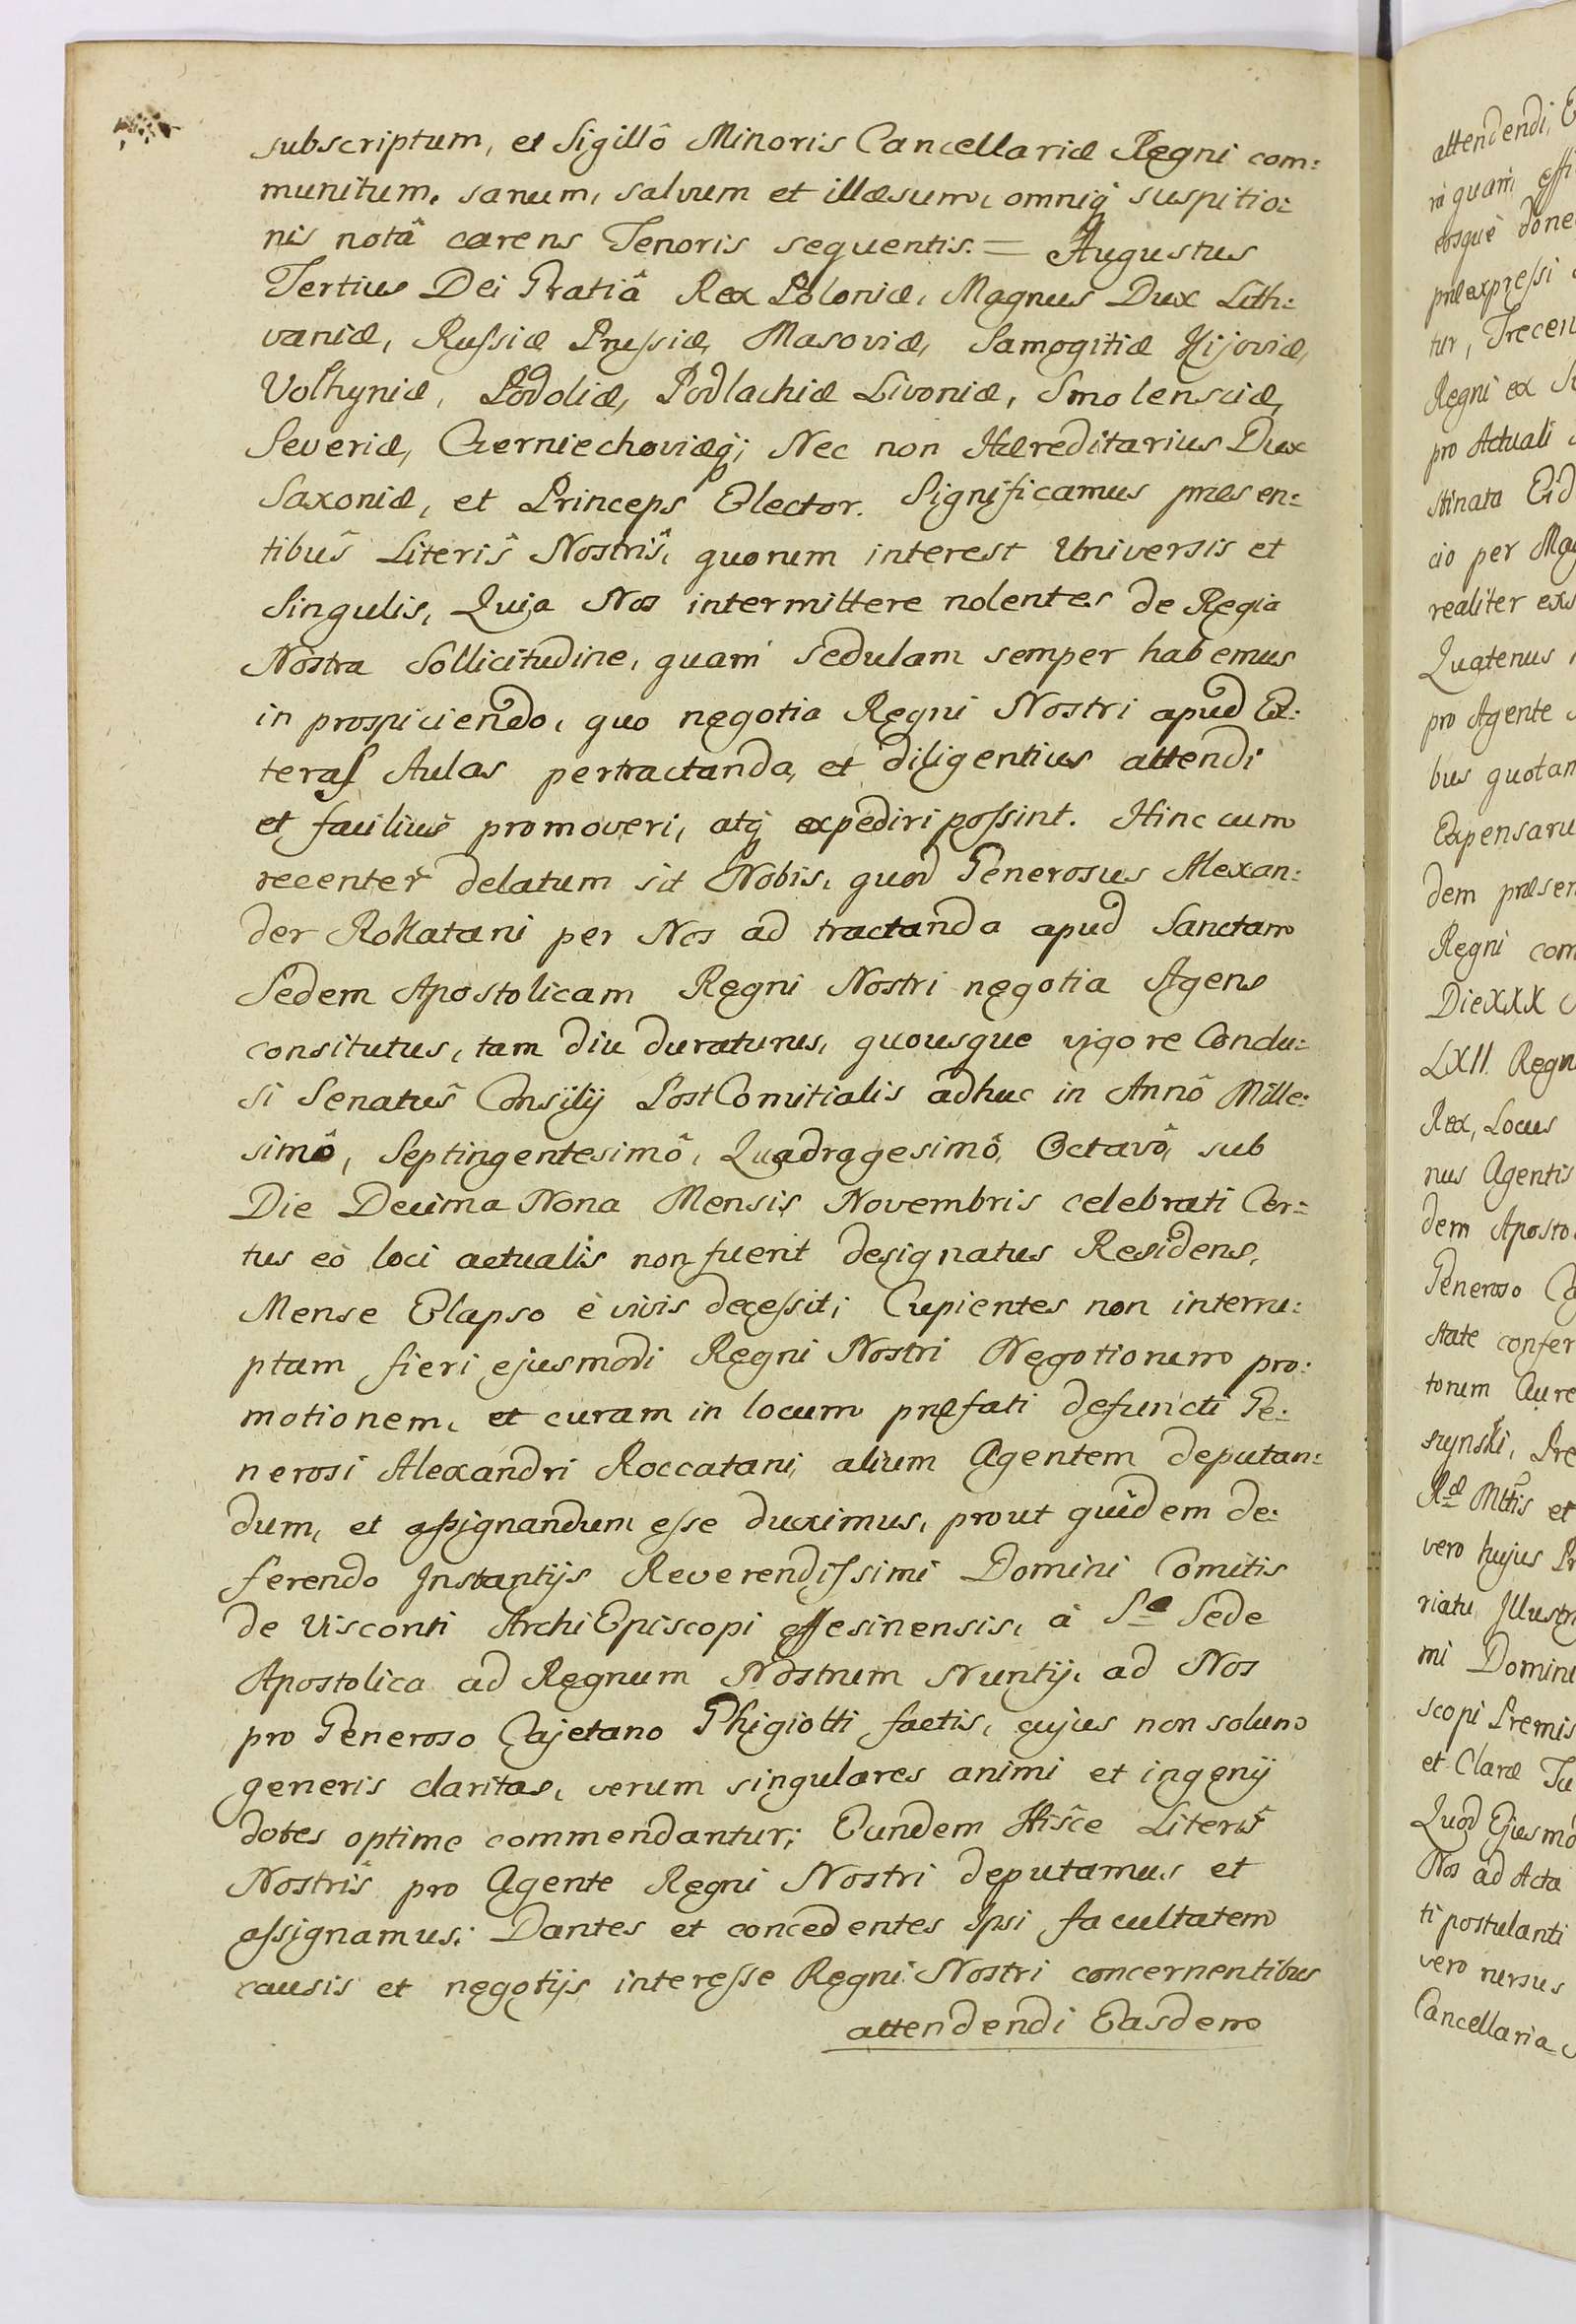 subscriptum, et Sigillô Minoris Cancellariæ Regni com:
munitum, sanum, salvum et illæsum, omniq́ suspitio:
nis notâ carens Tenoris sequentis. = Augustus
Tertius Dei Gratiâ Rex Poloniæ, Magnus Dux Lith:
vaniæ, Rußiæ Prußiæ, Masoviæ, Samogitiæ Kijoviæ,
Volhyniæ, Podoliæ, Podlachiæ Livoniæ, Smolensciæ,
Severiæ, Czerniechoviæq́; Nec non Hæreditarius Dux
Saxoniæ, et Princeps Elector. Significamus præsen:
tibus̑ Literis̑ Nostris̑, quorum interest Universis et
Singulis, Quia Nos intermittere nolentes de Regia
Nostra Sollicitudine, quam sedulam semper habemus
in prospiciendo, quo negotia Regni Nostri apud Ex:
teras Aulas pertractanda, et diligentius attendi
et faciliuè promoveri, atq́ expediri poßint. Hinc cum
recenter delatum sit Nobis, quod Generosus Alexan:
der Rokatani per Nos ad tractanda apud Sanctam
Sedem Apostolicam Regni Nostri negotia Agens
consitutus, tam diu duraturus, quousque vigore Conclu:
si Senatus̑ Consilij PostComitialis adhuc in Annô Mille:
simô, Septingentesimô, Quadragesimô, Octavô, sub
Die Decima Nona Mensis Novembris celebrati Cer:
tus eò loci actualis non fuerit designatus Residens,
Mense Elapso è vivis deceßit; Cupientes non interru:
ptam fieri ejusmodi Regni Nostri Negotiorum pro:
motionem, et curam in locum præfati defuncti Ge:
nerosi Alexandri Roccatani, alium Agentem deputan:
dum, et aßignandum eße duximus, prout quidem de:
ferendo Instantijs Reverendißimi Domini Comitis
de Visconti ArchiEpiscopi Effesinensis, à Sa Sede
Apostolica ad Regnum Nostrum Nuntij, ad Nos
pro Generoso Cajetano Ghigiotti factis, cujus non solum
generis claritas, verum singulares animi et ingenij
dotes optime commendantur; Eundem His̑ce Literis̑
Nostris̑ pro Agente Regni Nostri deputamus et
aßignamus; Dantes et concedentes Ipsi facultatem
causis et negotijs intereße Regni Nostri concernentibus
attendendi Easdem
attendendi, E
quam effi
eosque done
præexpreßi
tur, Trecen
Regni ex S
pro Actuali
stinata Eid
cio per Mag
realiter exs
Quatenus
pro Agente
bus quotan
Expensaru
dem præsen
Regni com
Die XXX
LXII Regn
Rex, Locus
nus Agentis
dem Aposto
Generoso Ca
state confer
torum Aure
szynski, Pre
Ræ Mttis et
vero hujus Pr
riatu Illustr
mi Domini
scopi Premis
et Claræ Tu
Quod Ejusmo
Nos ad Acta
ti postulanti
vero rursus
Cancellaria